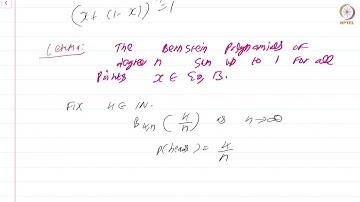 (x + (1 - x))^n = 1
NPTEL
Lemma: The Bernstein Polynomials of
degree n sum up to 1 for all
points x ∈ [0, 1].
Fix k ∈ ℕ.
B_{k,n} (k/n) as n → ∞
P(heads) = k/n